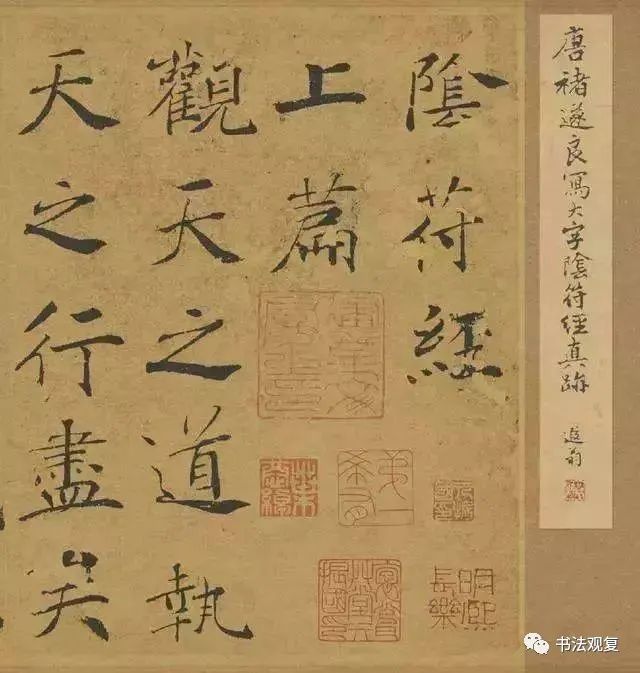 唐褚遂良寫大字陰符經真跡
遐翁
陰符經
上篇
觀天之道執
天之行盡矣
建業文房之印
书法观复